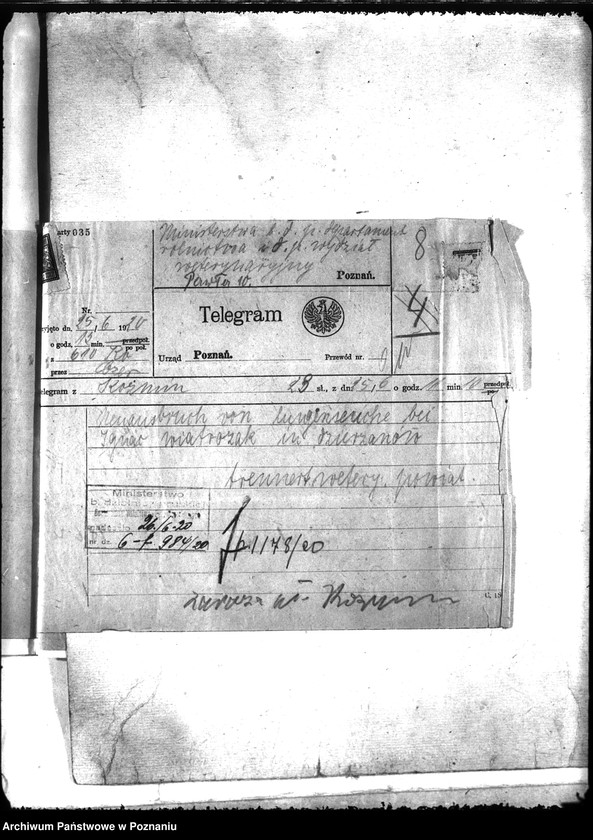 arty 035
Ministerstwa b. d. p. departament
rolnictwa i d. p. wydział
weterynaryjny
Pawła 10.
Poznań.
8
4
Nr.
yjęto dn. 25, 6 1920
o godz. 12 min. przedpoł. po poł.
z 610
przez
Telegram
Urząd Poznań.
Przewód nr.
elegram z Koźmin 29 sł., z dn. 25, 6 o godz. 11 min. 10 przedpoł. po
Neuausbruch von lungenseuche bei
Ignac Wiatrozak in Dzierzanów
brennert, wetery. powiat.
Ministerstwo
26/6-20
nr dz. 6-f-984/20.
1178/20
zaraza pł. Koźmin
C. 18
Archiwum Państwowe w Poznaniu